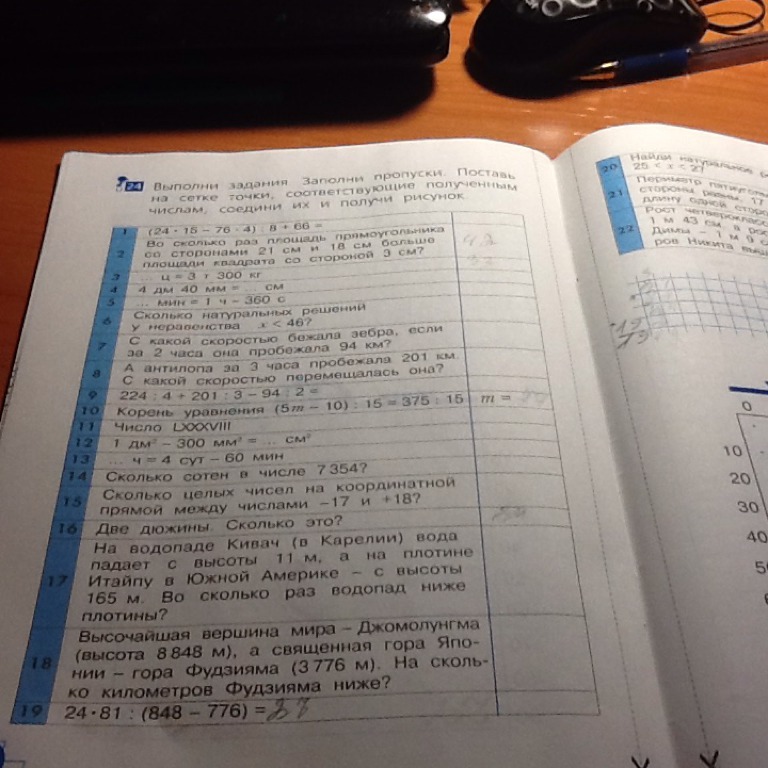 24 Выполни задания. Заполни пропуски. Поставь
на сетке точки, соответствующие полученным
числам, соедини их и получи рисунок.
1 (24 · 15 – 76 · 4) : 8 + 66 =
2 Во сколько раз площадь прямоугольника
со сторонами 21 см и 18 см больше
площади квадрата со стороной 3 см?
3 ... ц = 3 т 300 кг
4 4 дм 40 мм = ... см
5 ... мин = 1 ч – 360 с
6 Сколько натуральных решений
у неравенства x < 46?
7 С какой скоростью бежала зебра, если
за 2 часа она пробежала 94 км?
8 А антилопа за 3 часа пробежала 201 км.
С какой скоростью перемещалась она?
9 224 : 4 + 201 : 3 – 94 : 2 =
10 Корень уравнения (5m – 10) : 15 = 375 : 15 m =
11 Число LXXXVIII
12 1 дм² – 300 мм² = ... см²
13 ... ч = 4 сут – 60 мин
14 Сколько сотен в числе 7 354?
15 Сколько целых чисел на координатной
прямой между числами –17 и +18?
16 Две дюжины. Сколько это?
17 На водопаде Кивач (в Карелии) вода
падает с высоты 11 м, а на плотине
Итайпу в Южной Америке – с высоты
165 м. Во сколько раз водопад ниже
плотины?
18 Высочайшая вершина мира – Джомолунгма
(высота 8 848 м), а священная гора Япо-
нии – гора Фудзияма (3 776 м). На сколь-
ко километров Фудзияма ниже?
19 24 · 81 : (848 – 776) = 27
20 Найди натуральное
25 < x < 27
21 Периметр
стороны равен, 17
длину одной
22 Рост
1 м 43 см, а
Димы – 1 м 9
ров Никита
0
10
20
30
40